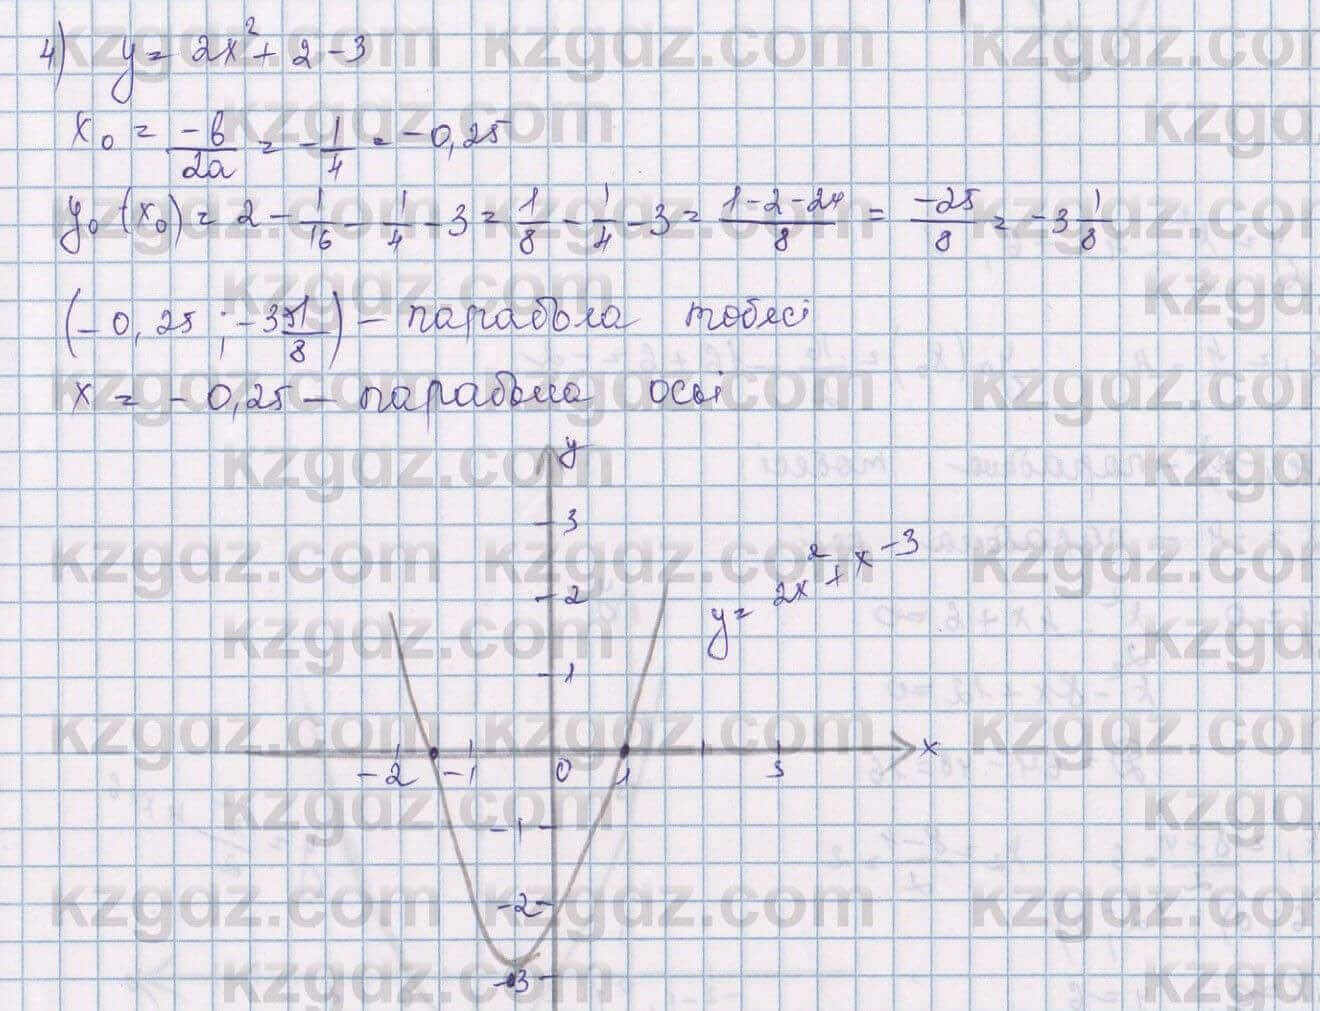 4) y = 2x² + 2 - 3
x₀ = -b/2a = -1/4 = -0,25
y₀(x₀) = 2 - 1/16 - 1/4 - 3 = 1/8 - 1/4 - 3 = 1-2-24/8 = -25/8 = -3 1/8
(-0,25 ; -3 1/8) - парабола төбесі
x = -0,25 - парабола осьі
y
3
y = 2x² + x - 3
2
1
-2 -1 0 1 3 x
-1
-2
-3
kzgdz.com